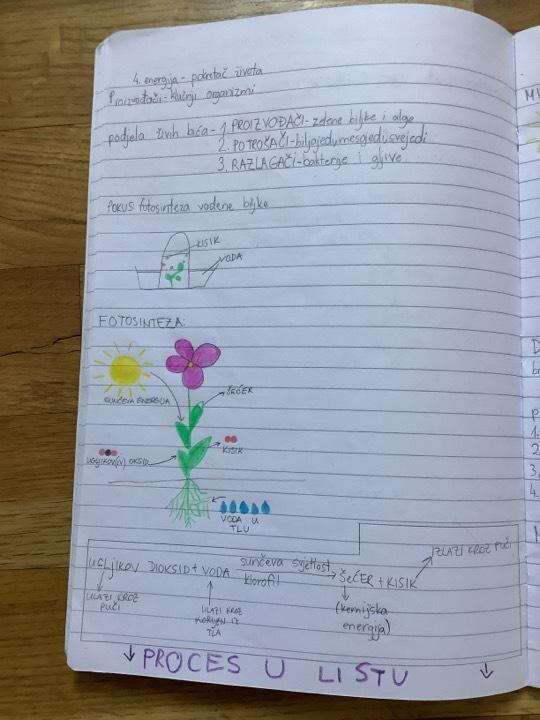 4. energija - pokretač života
Proizvođači - ključni organizmi
podjela živih bića - 1. PROIZVOĐAČI - zelene biljke i alge
2. POTROŠAČI - biljojedi, mesojedi, svejedi
3. RAZLAGAČI - bakterije i gljive
POKUS fotosinteza vodene biljke
KISIK
VODA
FOTOSINTEZA:
ŠEĆER
SUNČEVA ENERGIJA
KISIK
UGLJIKOV(IV) OKSID
VODA U
TLU
IZLAZI KROZ PUČI
UGLJIKOV DIOKSID + VODA sunčeva svjetlost
klorofil
ŠEĆER + KISIK
ULAZI KROZ
PUČI
ULAZI KROZ
KORIJEN IZ
TLA
(kemijska
energija)
↓ PROCES U LISTU ↓
D
1.
2
3.
4.